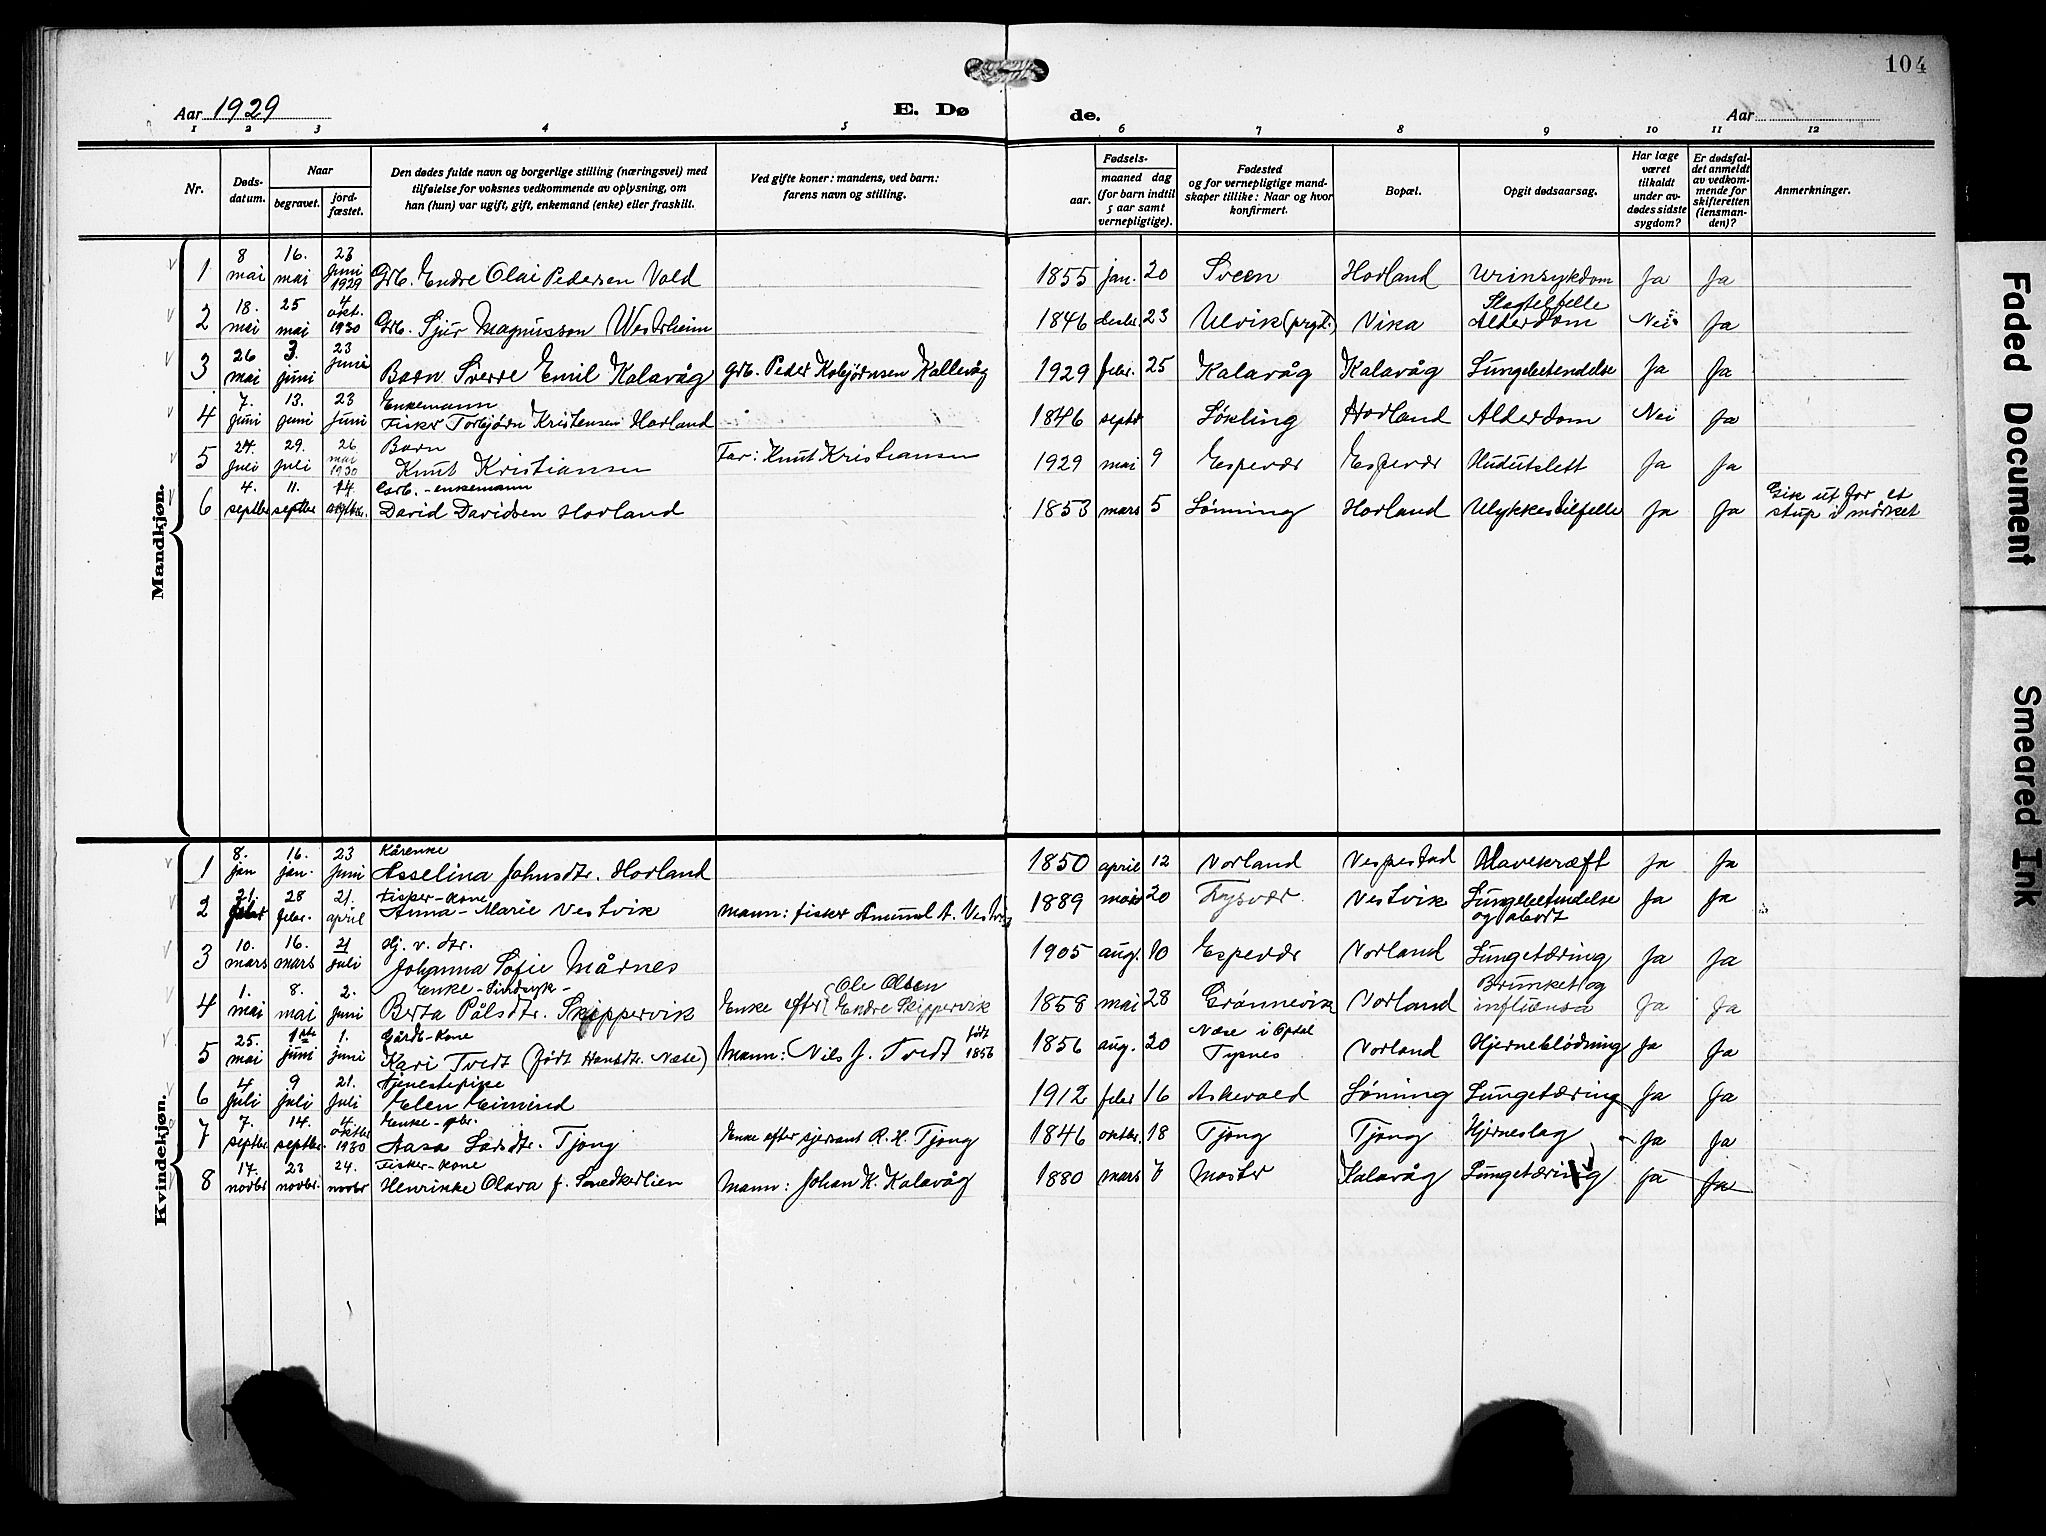 104
Aar 1929
E. Dø
de.
Aar
1 2 3 4 5 6 7 8 9 10 11 12
Nr.
Døds-
datum.
Naar
begravet.
jord-
fæstet.
Den dødes fulde navn og borgerlige stilling (næringsvei) med
tilføielse for voksnes vedkommende av oplysning, om
han (hun) var ugift, gift, enkemand (enke) eller fraskilt.
Ved gifte koner: mandens, ved barn:
farens navn og stilling.
Fødsels-
aar.
maaned dag
(for barn indtil
5 aar samt
vernepligtige).
Fødested
og for vernepligtige mand-
skaper tillike: Naar og hvor
konfirmert.
Bopæl.
Opgit dødsaarsag.
Har læge
været
tilkaldt
under av-
dødes sidste
sygdom?
Er dødsfal-
det anmeldt
av vedkom-
mende for
skifteretten
(lensman-
den)?
Anmerkninger.
Mandkjøn.
1 8 mai 16. mai 23 juni 1929 Grb. Endre Olai Pedersen Vold 1855 jan. 20 Sveen Hovland Urinsykdom Ja Ja
2 18. mai 25 mai 4 okt. 1930 Grb. Sjur Magnusson Westrheim 1846 desbr. 23 Ulvik (prgd.) Vika Slagtilfelle Alderdom Nei Ja
3 26 mai 3. juni 23 juni Barn Sverre Emil Kalavåg grb. Peder Kolbjørnsen Kallevåg 1929 febr. 25 Kalavåg Kalavåg Lungebetendelse Ja Ja
4 7. juni 13. juni 23 juni Enkemann
Fisker Torbjørn Kristensen Hovland 1846 septr Løkling Hovland Alderdom Nei Ja
5 24. juli 29. juli 26 mai 1930 Barn
Knut Kristiansen Far: Knut Kristiansen 1929 mai 9 Espevær Espevær Hudutslett Ja Ja
6 4. septbr 11. septbr 14. Garb. - enkemann
David Davidsen Hovland 1853 mars 5 Lønning Hovland Ulykkestilfelle Ja Ja Gik ut for et
stup i mørket
Kvindekjøn.
1 8. jan 16. jan. 23 juni Kårenke
Asselina Johnsdtr. Hovland 1850 april 12 Vorland Vespestad Mavekræft Ja Ja
2 21. febr 28 febr. 21. april Fisker-kone
Anna-Marie Vestvik Mann: fisker Amund A. Vestvig 1889 mai 20 Tysvær Vestvik Lungebetendelse
og abort Ja Ja
3 10. mars 16. mars 21 juli Hj. v. dtr.
Johanna Sofie Mårnes 1905 aug. 10 Espevær Vorland Lungetæring Ja Ja
4 1. mai 8. mai 2. juni Enke - Sindsyk -
Berta Pålsdtr. Skippervik Enke efter Ole Olsen
Endre Skippervik 1858 mai 28 Grønnevik Vorland Brunket og
influensa Ja Ja
5 25. mai 1ste juni 1. juni Gårdb-kone
Kari Tvedt (født Hansdtr. Næse) Mann: Nils J. Tvedt født 1856 1856 aug. 20 Næse i Opdal
Tysnes Vorland Hjerneblødning Ja Ja
6 4 juli 9 juli 21. juli Tjenestepike
Elen Eimind 1912 febr 16 Askvold Lønning Lungetæring Ja Ja
7 7. septbr 14. septbr. 4. oktbr 1930 Enke - gbr.
Aasa Larsdtr. Tjong Enke efter sjersant R. H. Tjong 1846 oktbr. 18 Tjong Tjong Hjerneslag Ja Ja
8 17. novbr 23 novbr. 24. novbr Fisker-kone
Henrikke Olava f. Snedkerlien Mann: Johan K. Kalavåg 1880 mars 7 Moster Kalavåg Lungetæring Ja Ja
Faded Document
Smeared Ink